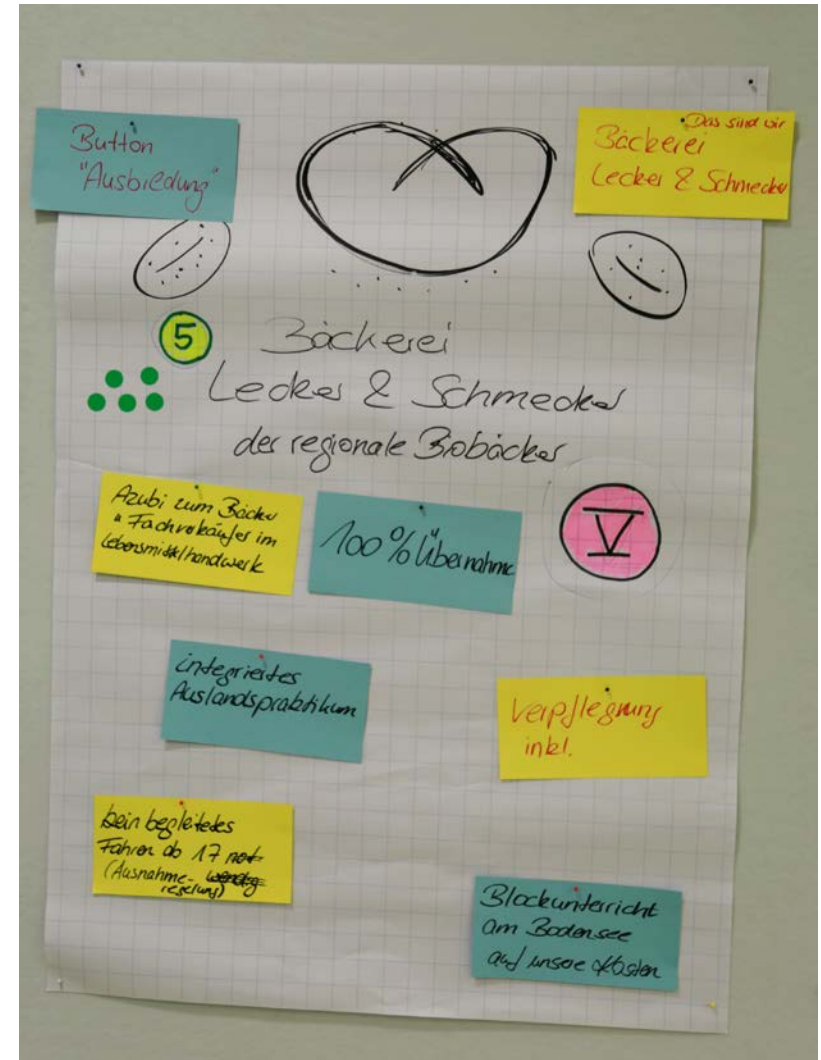 Button
"Ausbildung"
Das sind wir
Bäckerei
Lecker & Schmecker
5
Bäckerei
Lecker & Schmecker
der regionale Biobäcker
Azubi zum Bäcker
" Fachverkäufer im
Lebensmittelhandwerk
100% Übernahme
V
integriertes
Auslandspraktikum
Verpflegung
inkl.
kein begleitetes
Fahren ab 17 not
(Ausnahme- wendig
regelung)
Blockunterricht
am Bodensee
auf unsere Kosten